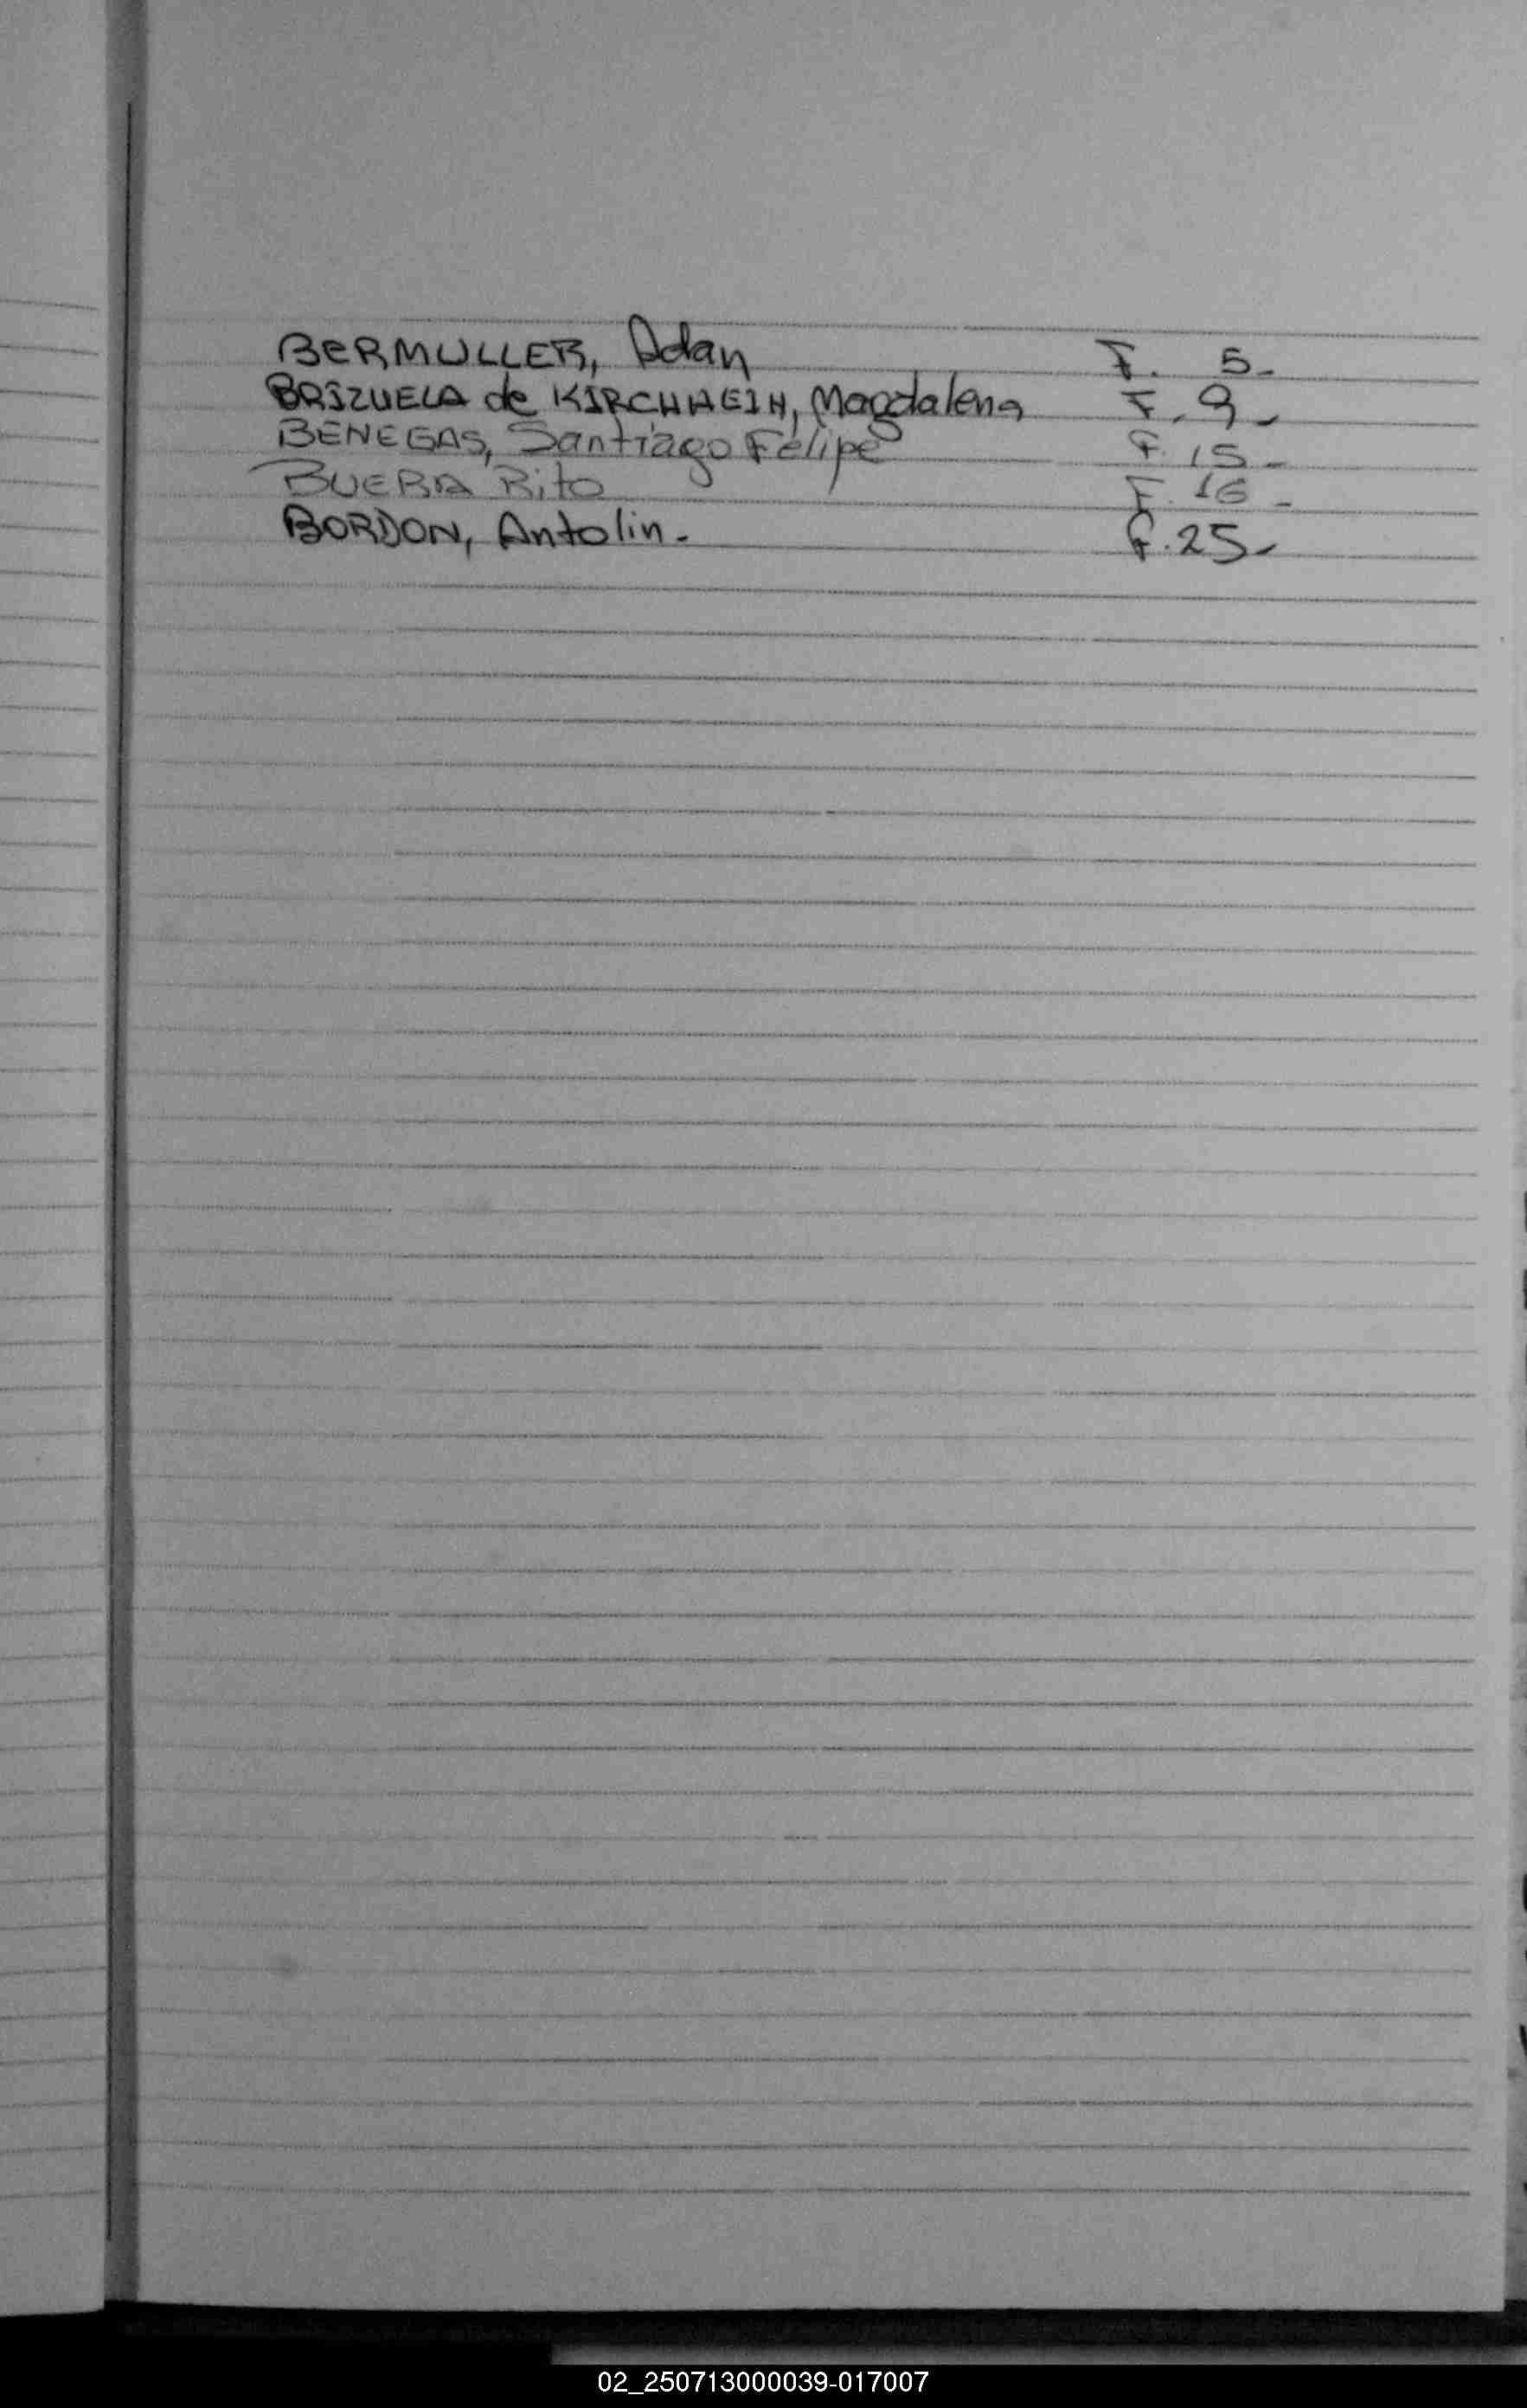 BERMULLER, Adan F. 5-
BRIZUELA de KIRCHHEIN, Magdalena F. 9-
BENEGAS, Santiago Felipe F. 15-
BUERA Rito F. 16-
BORDON, Antolin.- F. 25-
02_250713000039-017007